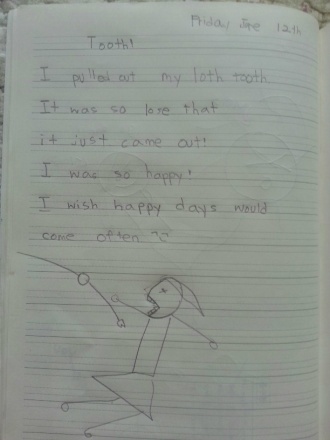 Friday June 12th
Tooth!
I pulled out my 10th tooth
It was so lose that
it just came out!
I was so happy!
I wish happy days would
come often